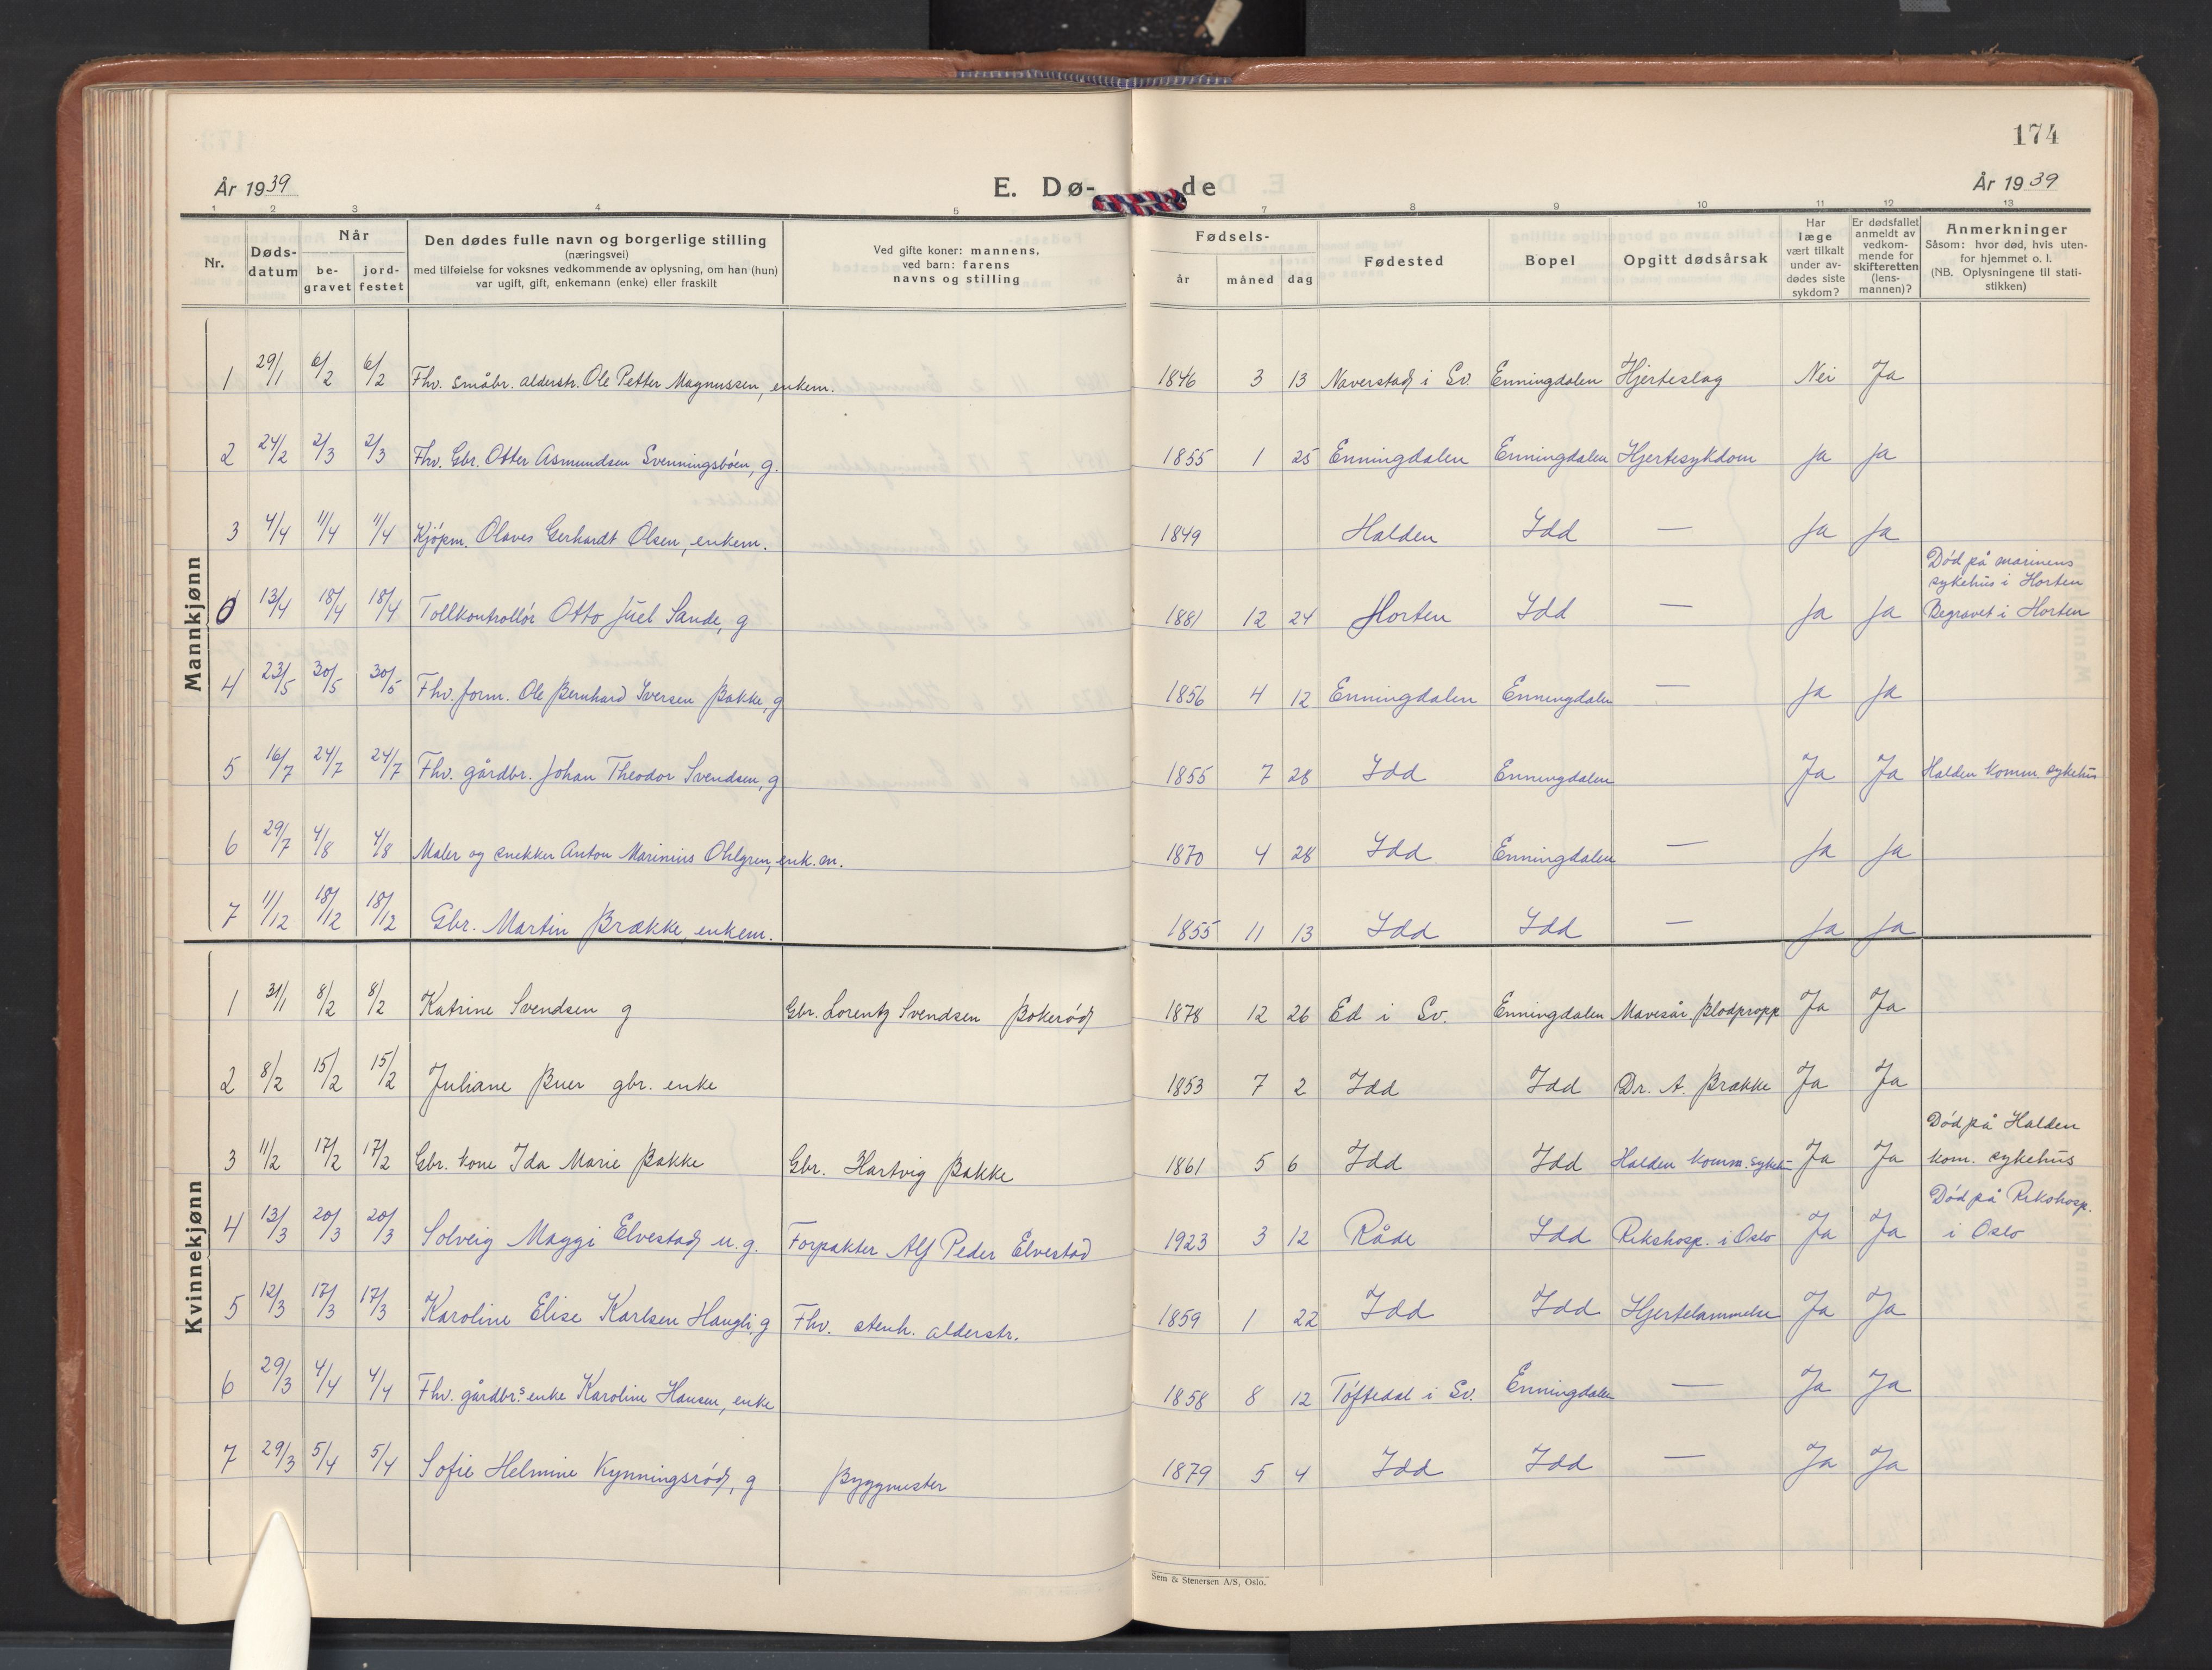 174
År 1939
E. Dø-
de
År 1939
1 2 3 4 5 7 8 9 10 11 12 13
Nr.
Døds-
datum
Når
be-
gravet
jord-
festet
Den dødes fulle navn og borgerlige stilling
(næringsvei)
med tilføielse for voksnes vedkommende av oplysning, om han (hun)
var ugift, gift, enkemann (enke) eller fraskilt
Ved gifte koner: mannens,
ved barn: farens
navns og stilling
Fødsels-
år måned dag
Fødested
Bopel
Opgitt dødsårsak
Har
læge
vært tilkalt
under av-
dødes siste
sykdom?
Er dødsfallet
anmeldt av
vedkom-
mende for
skifteretten
(lens-
mannen)?
Anmerkninger
Såsom: hvor død, hvis uten-
for hjemmet o. l.
(NB. Oplysningene til stati-
stikken)
Mannkjønn
1 29/1 6/2 6/2 Fhv. småbr. alderstr. Ole Petter Magnussen, enkem. 1846 3 13 Naverstad i Sv. Enningdalen Hjerteslag Nei Ja
2 24/2 2/3 2/3 Fhv. Gbr. Otter Asmundsen Svenningsbøen, g. 1855 1 25 Enningdalen Enningdalen Hjertesykdom Ja Ja
3 4/4 11/4 11/4 Kjøpm. Olaves Gerhardt Olsen, enkem. 1849 Halden Idd — Ja Ja
Død på marinens
sykehus i Horten
0 13/4 18/4 18/4 Tollkontrollør Otto Juel Sande, g 1881 12 24 Horten Idd — Ja Ja Begravet i Horten
4 23/5 30/5 30/5 Fhv. form. Ole Bernhard Iversen Bakke, g 1856 4 12 Enningdalen Enningdalen — Ja Ja
5 16/7 24/7 24/7 Fhv. gårdbr. Johan Theodor Svendsen, g 1855 7 28 Idd Enningdalen Ja Ja Halden komm. sykehus
6 29/7 4/8 4/8 Maler og snekker Anton Marinius Ohlgren, enk.m. 1870 4 28 Idd Enningdalen — Ja Ja
7 11/12 18/12 18/12 Gbr. Martin Brække, enkem. 1855 11 13 Idd Idd — Ja Ja
Kvinnekjønn
1 31/1 8/2 8/2 Katrine Svendsen g Gbr. Lorentz Svendsen Bokerød 1878 12 26 Ed i Sv. Enningdalen Mavesår. Blodpropp Ja Ja
2 8/2 15/2 15/2 Juliane Buer gbr. enke 1853 7 2 Idd Idd Dr. A. Brække Ja Ja
Død på Halden
3 11/2 17/2 17/2 Gbr. kone Ida Marie Bakke Gbr. Hartvig Bakke 1861 5 6 Idd Idd Halden komm. sykeh. Ja Ja kom. sykehus
Død på Rikshosp.
4 13/3 20/3 20/3 Solveig Maggi Elvestad u.g. Forpakter Alf Peder Elvestad 1923 3 12 Råde Idd Rikshosp. i Oslo Ja Ja i Oslo
5 12/3 17/3 17/3 Karoline Elise Karlsen Haugli, g Fhv. stenh. alderstr. 1859 1 22 Idd Idd Hjertelammelse Ja Ja
6 29/3 4/4 4/4 Fhv. gårdbr.s enke Karoline Hansen, enke 1858 8 12 Tøftedal i Sv. Enningdalen — Ja Ja
7 29/3 5/4 5/4 Sofie Helmine Kynningsrød, g Byggmester 1879 5 4 Idd Idd — Ja Ja
Sem & Stenersen A/S, Oslo.